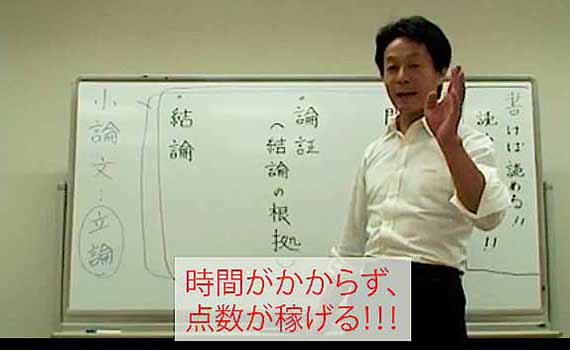 書けば読める!!
読
!!
問
・論証
(結論の根拠)
・結論
小論文:立論
時間がかからず、
点数が稼げる!!!